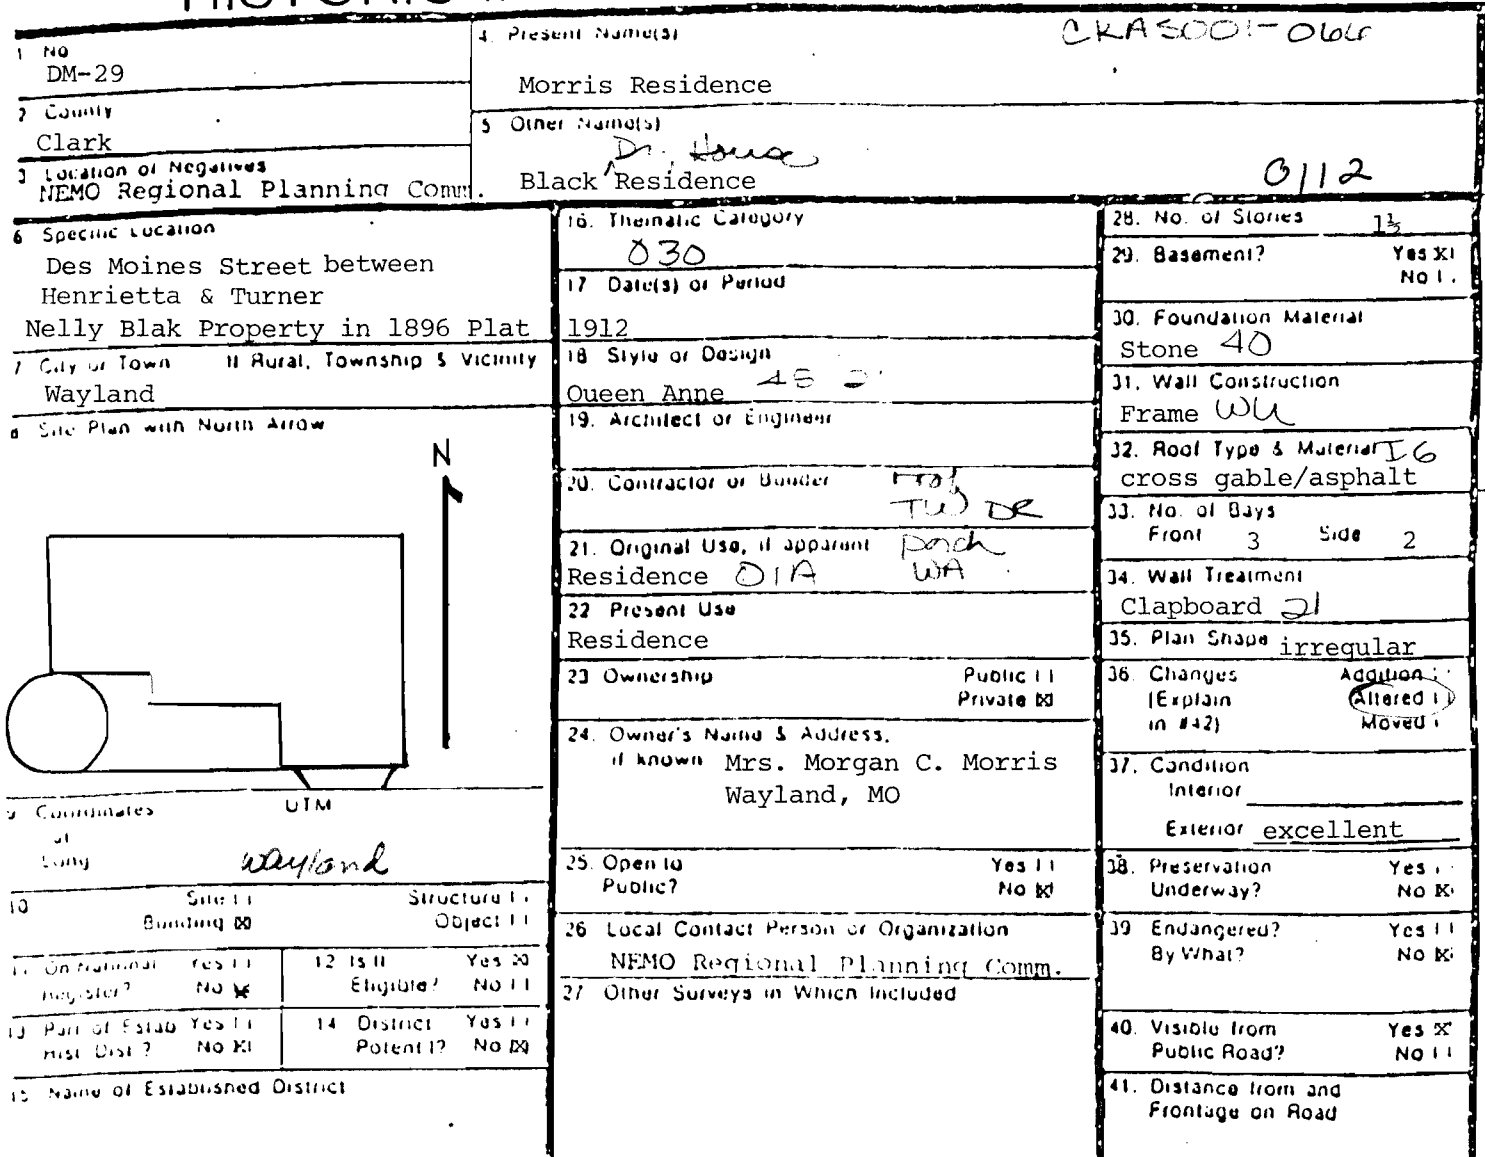 1 No
DM-29
2 County
Clark
3 Location of Negatives
NEMO Regional Planning Comm.
4. Present Name(s)
CKAS001-066
Morris Residence
5 Other Name(s)
Dr. House
Black Residence
0112
6 Specific Location
Des Moines Street between
Henrietta & Turner
Nelly Blak Property in 1896 Plat
7 City or Town If Rural, Township & Vicinity
Wayland
8 Site Plan with North Arrow
N
9 Coordinates UTM
Lat
Long
Wayland
10 Site Structure
Building Object
11 On National Yes
Register? No
12 Is It Yes
Eligible? No
13 Part of Estab Yes
Hist Dist? No
14 District Yes
Potent'l? No
15 Name of Established District
16. Thematic Category
030
17 Date(s) or Period
1912
18 Style or Design
Queen Anne 45
19. Architect or Engineer
20. Contractor or Builder
TW DR
21. Original Use, if apparent porch
Residence 01A WA
22 Present Use
Residence
23 Ownership Public
Private
24. Owner's Name & Address,
if known Mrs. Morgan C. Morris
Wayland, MO
25. Open to Yes
Public? No
26 Local Contact Person or Organization
NEMO Regional Planning Comm.
27 Other Surveys in Which Included
28. No. of Stories 1½
29. Basement? Yes
No
30. Foundation Material
Stone 40
31. Wall Construction
Frame WU
32. Roof Type & Material IG
cross gable/asphalt
33. No. of Bays
Front 3 Side 2
34. Wall Treatment
Clapboard 21
35. Plan Shape irregular
36. Changes Addition
(Explain Altered
in #42) Moved
37. Condition
Interior
Exterior excellent
38. Preservation Yes
Underway? No
39 Endangered? Yes
By What? No
40. Visible from Yes
Public Road? No
41. Distance from and
Frontage on Road